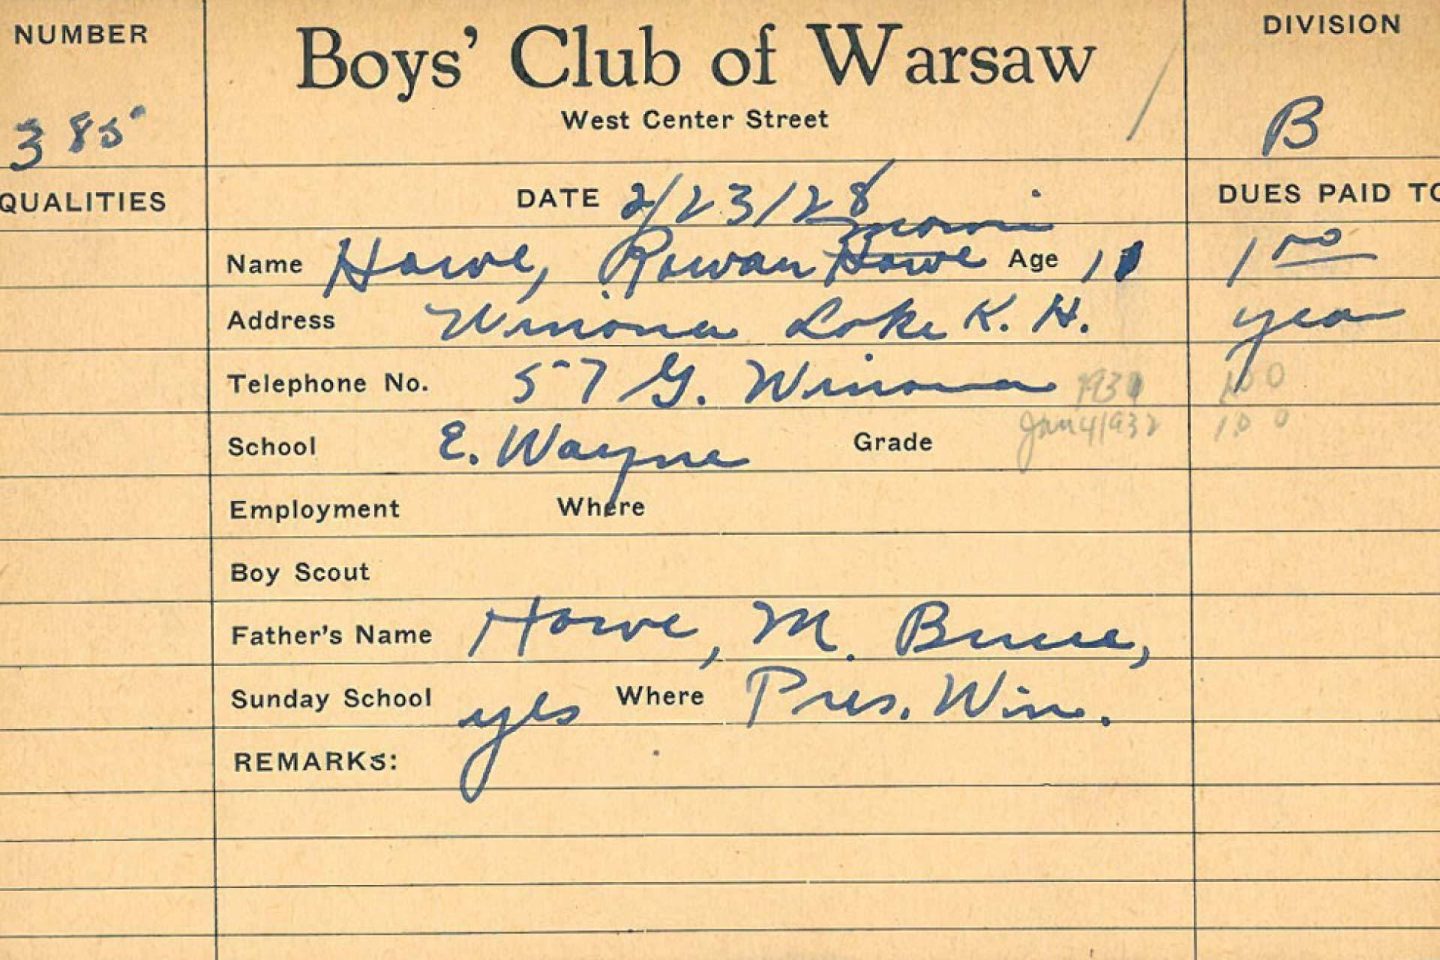 NUMBER
Boys' Club of Warsaw
DIVISION
West Center Street
385
B
QUALITIES
DATE 2/23/28
DUES PAID TO
Name Howe, Rowan Howe Age 11
1 00
Address Winona Lake K. H.
year
Telephone No. 57 G. Winona
1931
1.00
School E. Wayne Grade
Jan 4 1932
1.00
Employment Where
Boy Scout
Father's Name Howe, M. Bruce,
Sunday School yes Where Pres. Win.
REMARKS: